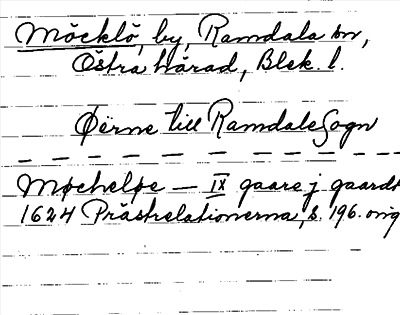 Möcklö, by, Ramdala sn,
Östra härad, Blek. l.
Øerne till Ramdale Sogn
Møcheløe — IX gaare j gaardt
1624 Prästrelationerna, s. 196. orig